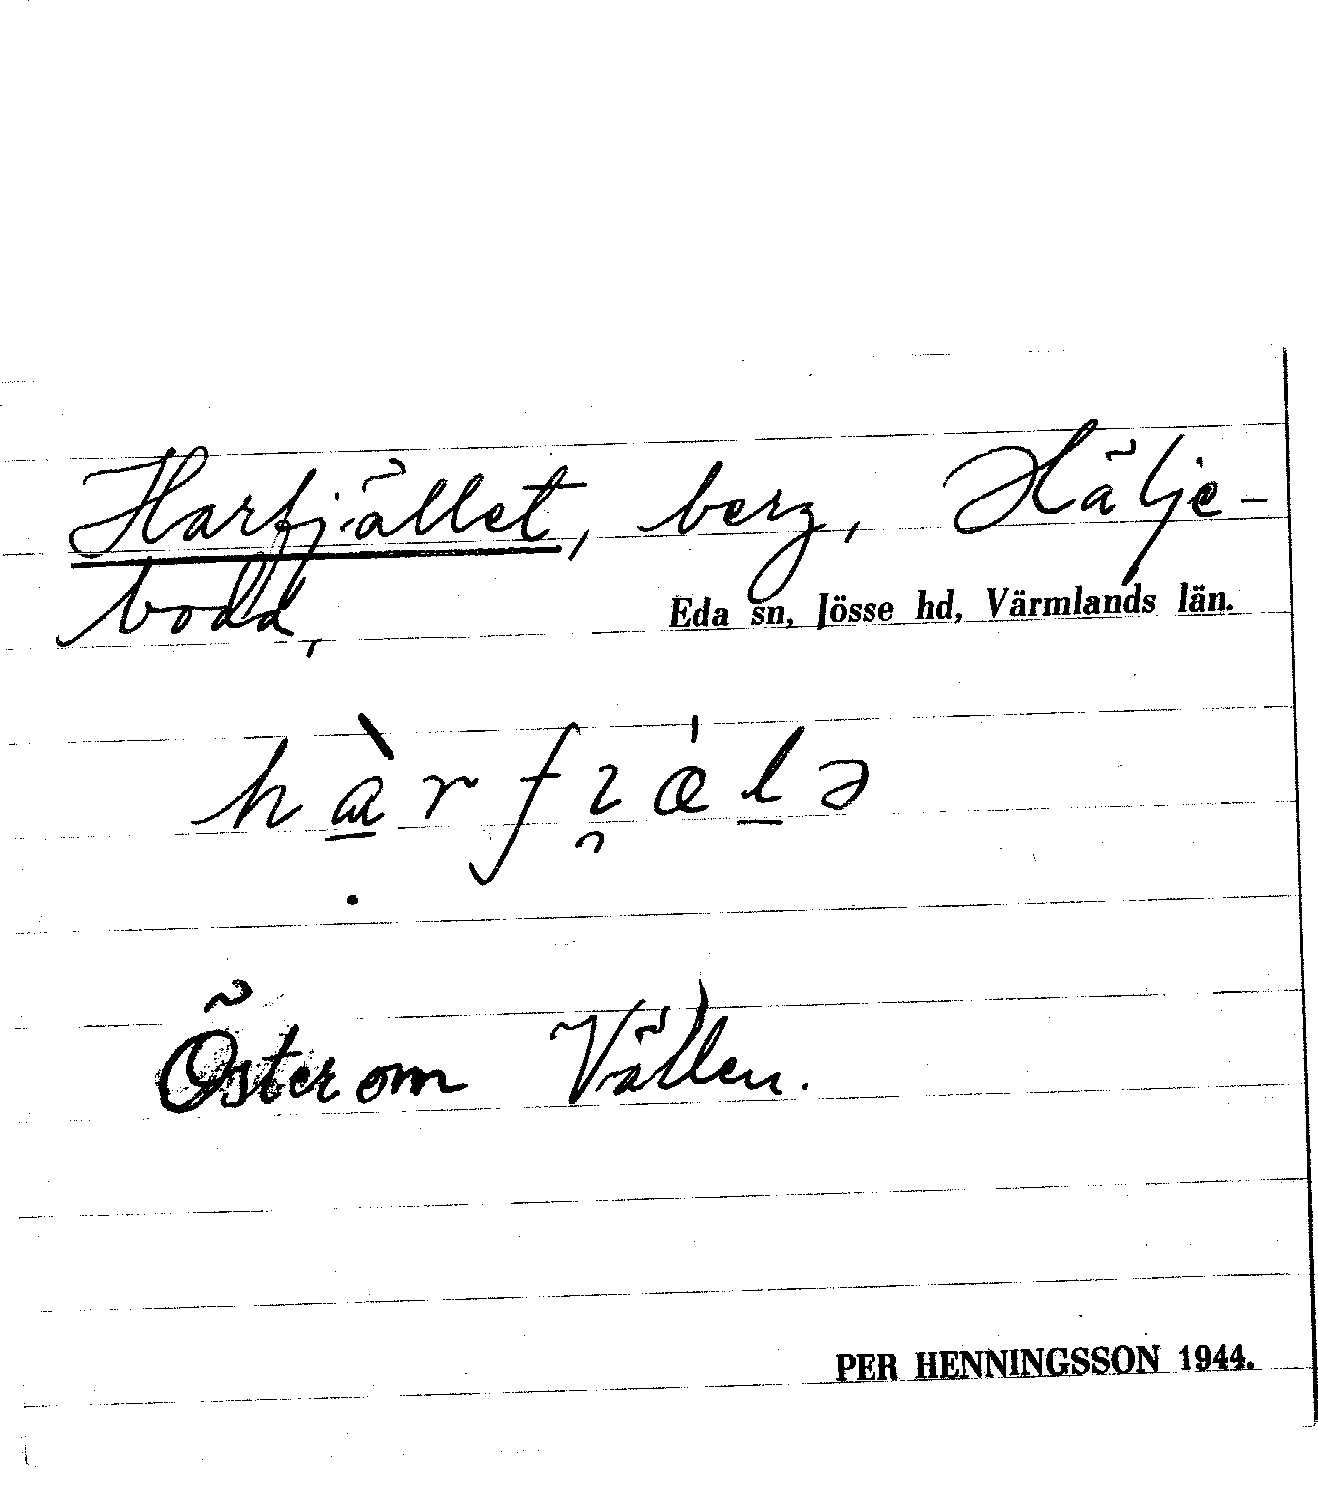 Harfjället, berg, Hälje-
bodd,
Eda sn, Jösse hd, Värmlands län.
hàrfı̯ǽlə
Öster om Vällen.
PER HENNINGSSON 1944.